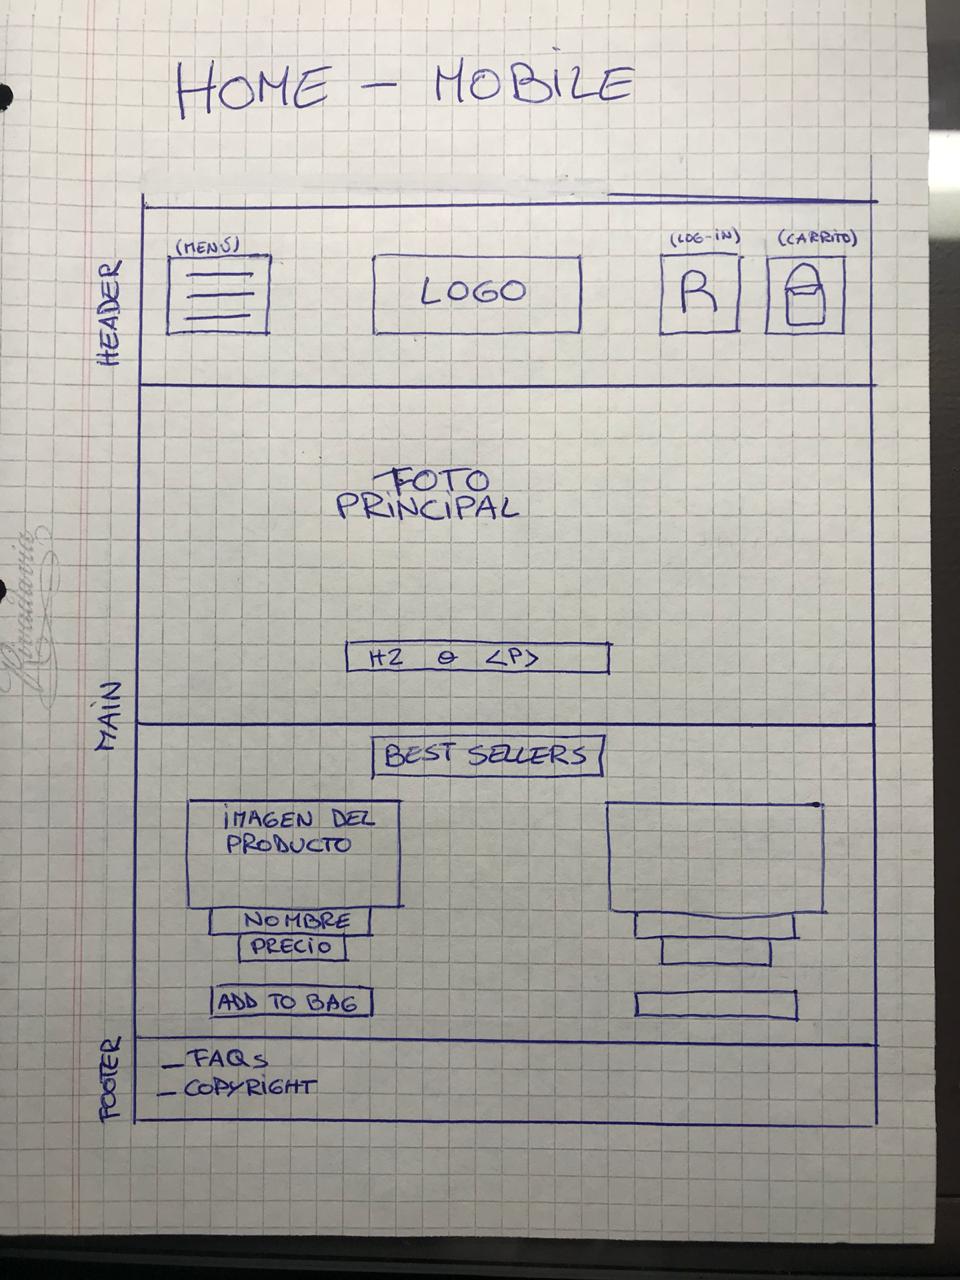 HOME - MOBILE
HEADER
(MENÚ)
LOGO
(LOG-IN)
R
(CARRITO)
FOTO
PRINCIPAL
H2 o <P>
MAIN
BEST SELLERS
IMAGEN DEL
PRODUCTO
NOMBRE
PRECIO
ADD TO BAG
FOOTER
- FAQs
- COPYRIGHT
Rivadavia